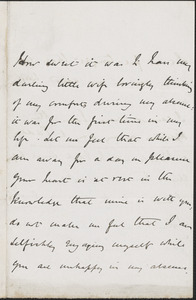 How sweet it was to have my
darling little wife lovingly thinking
of my comforts during my absence
it was for the first time in my
life - let me feel that while I
am away for a day on pleasure
your heart is at rest in the
knowledge that mine is with you
do not make me feel that I am
selfishly enjoying myself while
you are unhappy in my absence